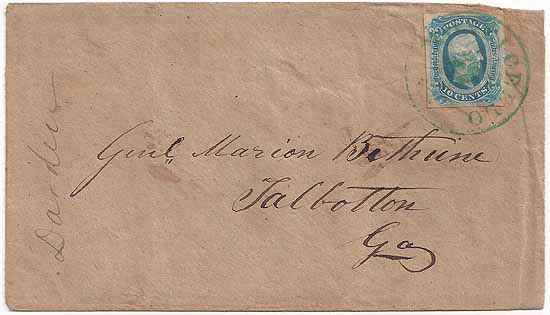 POSTAGE
10 CENTS
Genl. Marion Bethune
Talbotton
Ga
Darden